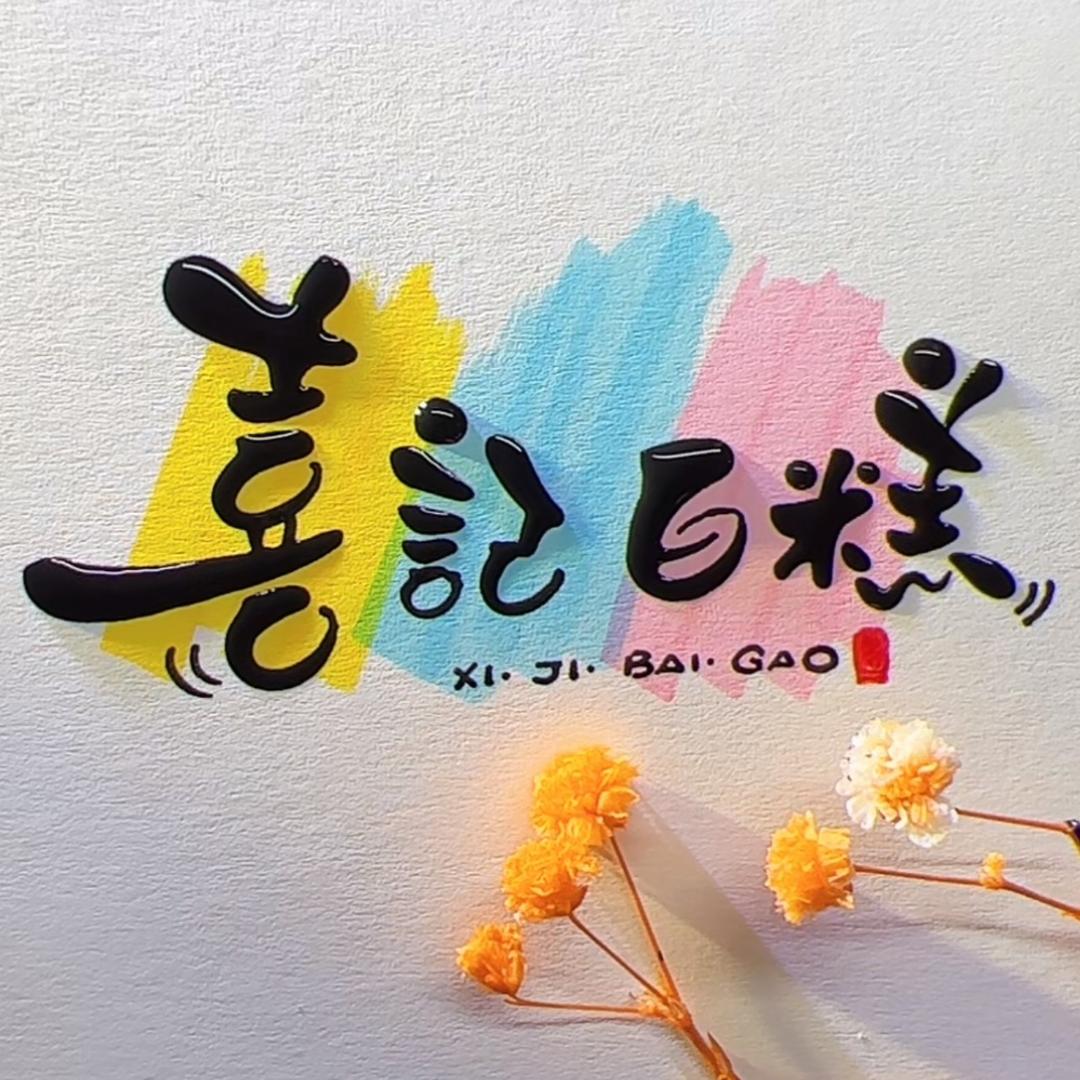 喜記白糕
XI· JI· BAI· GAO